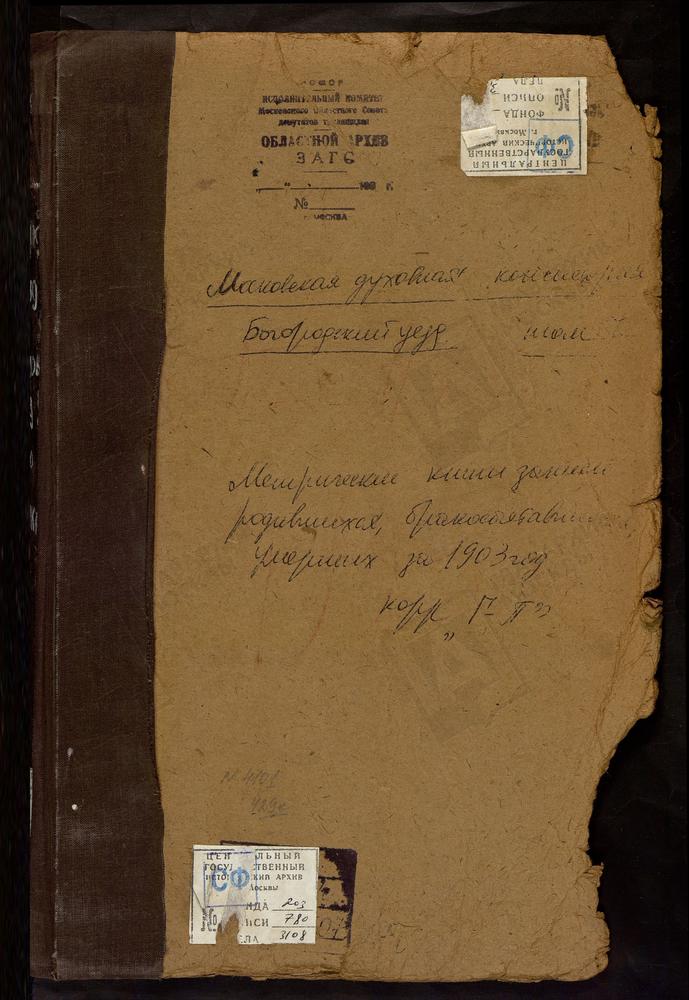 РСФСР
ИСПОЛНИТЕЛЬНЫЙ КОМИТЕТ
Московского Областного Совета
депутатов трудящихся
ОБЛАСТНОЙ АРХИВ
ЗАГС
" 19 г.
№
г. МОСКВА
ЦЕНТРАЛЬНЫЙ
ГОСУДАРСТВЕННЫЙ
ИСТОРИЧЕСКИЙ АРХИВ
г. Москвы
СФ
ФОНДА
№ ОПИСИ
ДЕЛА
Московская духовная консистория
Богородский уезд том
Метрические книги записи
родившихся, бракосочетавшихся,
умерших за 1903 год
корр „Г-П”
№ 4101
ЦЕН ЛЬНЫЙ
ГОСУ ТВЕННЫЙ
ИСТОР СКИЙ АРХИВ
Москвы
СФ
НДА 203
№ ИСИ 780
ЕЛА 3108